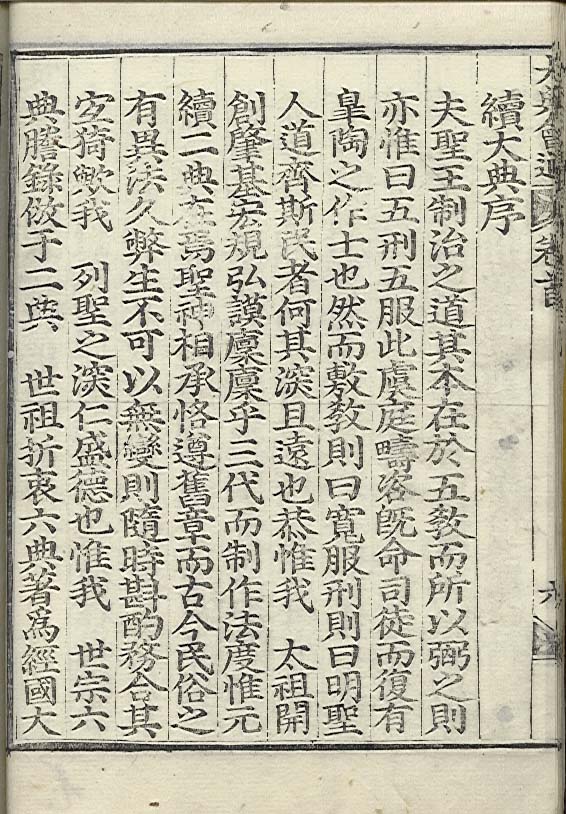 大典會通 卷首 九
續大典序
夫聖王制治之道其本在於五敎而所以弼之則
亦惟曰五刑五服此虞庭疇咨旣命司徒而復有
臯陶之作士也然而敷敎則曰寬服刑則曰明聖
人道齊斯民者何其深且遠也恭惟我 太祖開
創肇基宏規弘謨廩廩乎三代而制作法度惟元
續二典在焉聖神相承恪遵舊章而古今民俗之
有異法久弊生不可以無變則隨時斟酌務合其
宜猗歟我 列聖之深仁盛德也惟我 世宗六
典謄錄倣于二典 世祖折衷六典著爲經國大